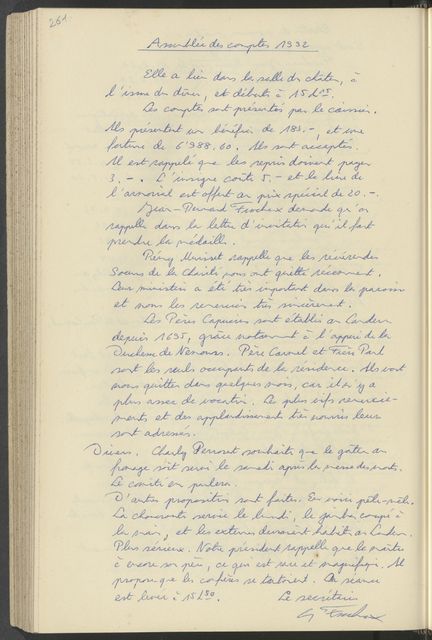 261
Assemblée des comptes 1992
Elle a lieu dans la salle du château, à
l'issue du dîner, et débute à 15h05.
Les comptes sont présentés par le caissier.
Ils présentent un bénéfice de 183.-, et une
fortune de 6'988.60. Ils sont acceptés.
Il est rappelé que les repris doivent payer
3.-. L'insigne coûte 5.- et le livre de
l'armorial est offert au prix spécial de 20.-.
Jean-Bernard demande qu'on
rappelle dans la lettre d'invitation qu'il faut
prendre la médaille.
Rémy rappelle que les révérendes
Soeurs de la Charité nous ont quitté récemment.
Leur ministère a été très important dans la paroisse
et nous les remercions très sincèrement.
Les Pères Capucins sont établis au Landeron
depuis 1695, grâce notamment à l'appui de la
Duchesse de Nemours. Père et Frère Paul
sont les seuls occupants de la résidence. Ils vont
nous quitter dans quelques mois, car il n'y a
plus assez de vocation. Les plus vifs remercie-
ments et des applaudissements très nourris leur
sont adressés.
Divers. Charly Perroset souhaite que le gâteau au
fromage soit servi le samedi après la messe des morts.
Le comité en parlera.
D'autres propositions sont faites. En voici pêle-mêle.
La choucroute servie le lundi, le jambon coupé à
la main, et les devraient habiter au Landeron.
Plus sérieux. Notre président rappelle que le maître
à encore son père, ce qui est rare et magnifique. Il
propose que les confrères se tutoient. La séance
est levée à 15h50. Le secrétaire